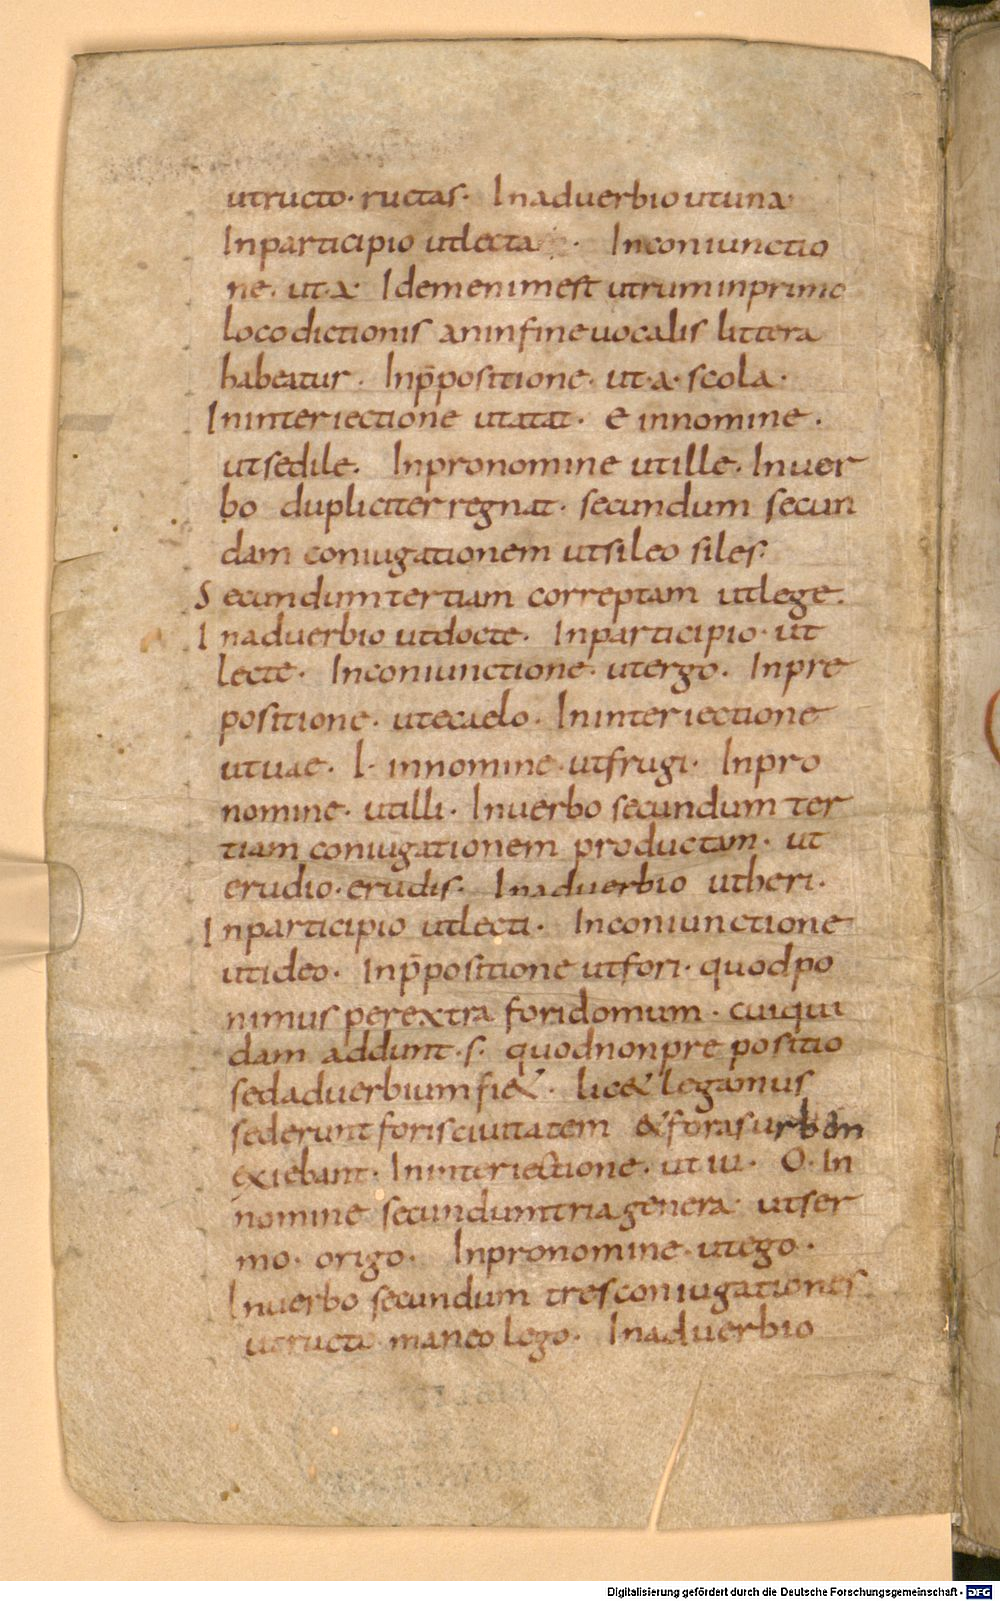 utructo· ructas· Inaduerbio utuna·
Inparticipio utlecta · Inconiunctio
ne· ut·a· Idemenimest utruminprimo
locodictionis aninfineuocalis littera
habeatur· Inp̄positione· ut·a·scola·
Ininteriectione utatat· e innomine·
utsedile· Inpronomine utille· Inuer
bo dupliciter regnat· secundum secun
dam coniugationem utsileo siles·
Secundumtertiam correptam utlege·
Inaduerbio utdocte· Inparticipio· ut
lecte· Inconiunctione· utergo· Inpre
positione· utecaelo· Ininteriectione
utuae· I· innomine·utfrugi· Inpro
nomine· utilli· Inuerbo secundum ter
tiam coniugationem productam· ut
erudio·erudis· Inaduerbio utheri·
Inparticipio utlecti· Inconiunctione
utideo· Inp̄positione utfori· quodpo
nimus perextra foridomum· cuiqui
dam addunt·s· quodnonpre positio
sedaduerbiumfi&· lic& legamus
sederuntforisciuitatem &forasurbem
exiebant· Ininteriectione· ut iu· O· In
nomine secundumtriagenera· utser
mo· origo· Inpronomine·utego·
Inuerbo secundum tresconiugationes
utructo·maneo lego· Inaduerbio
Digitalisierung gefördert durch die Deutsche Forschungsgemeinschaft - DFG